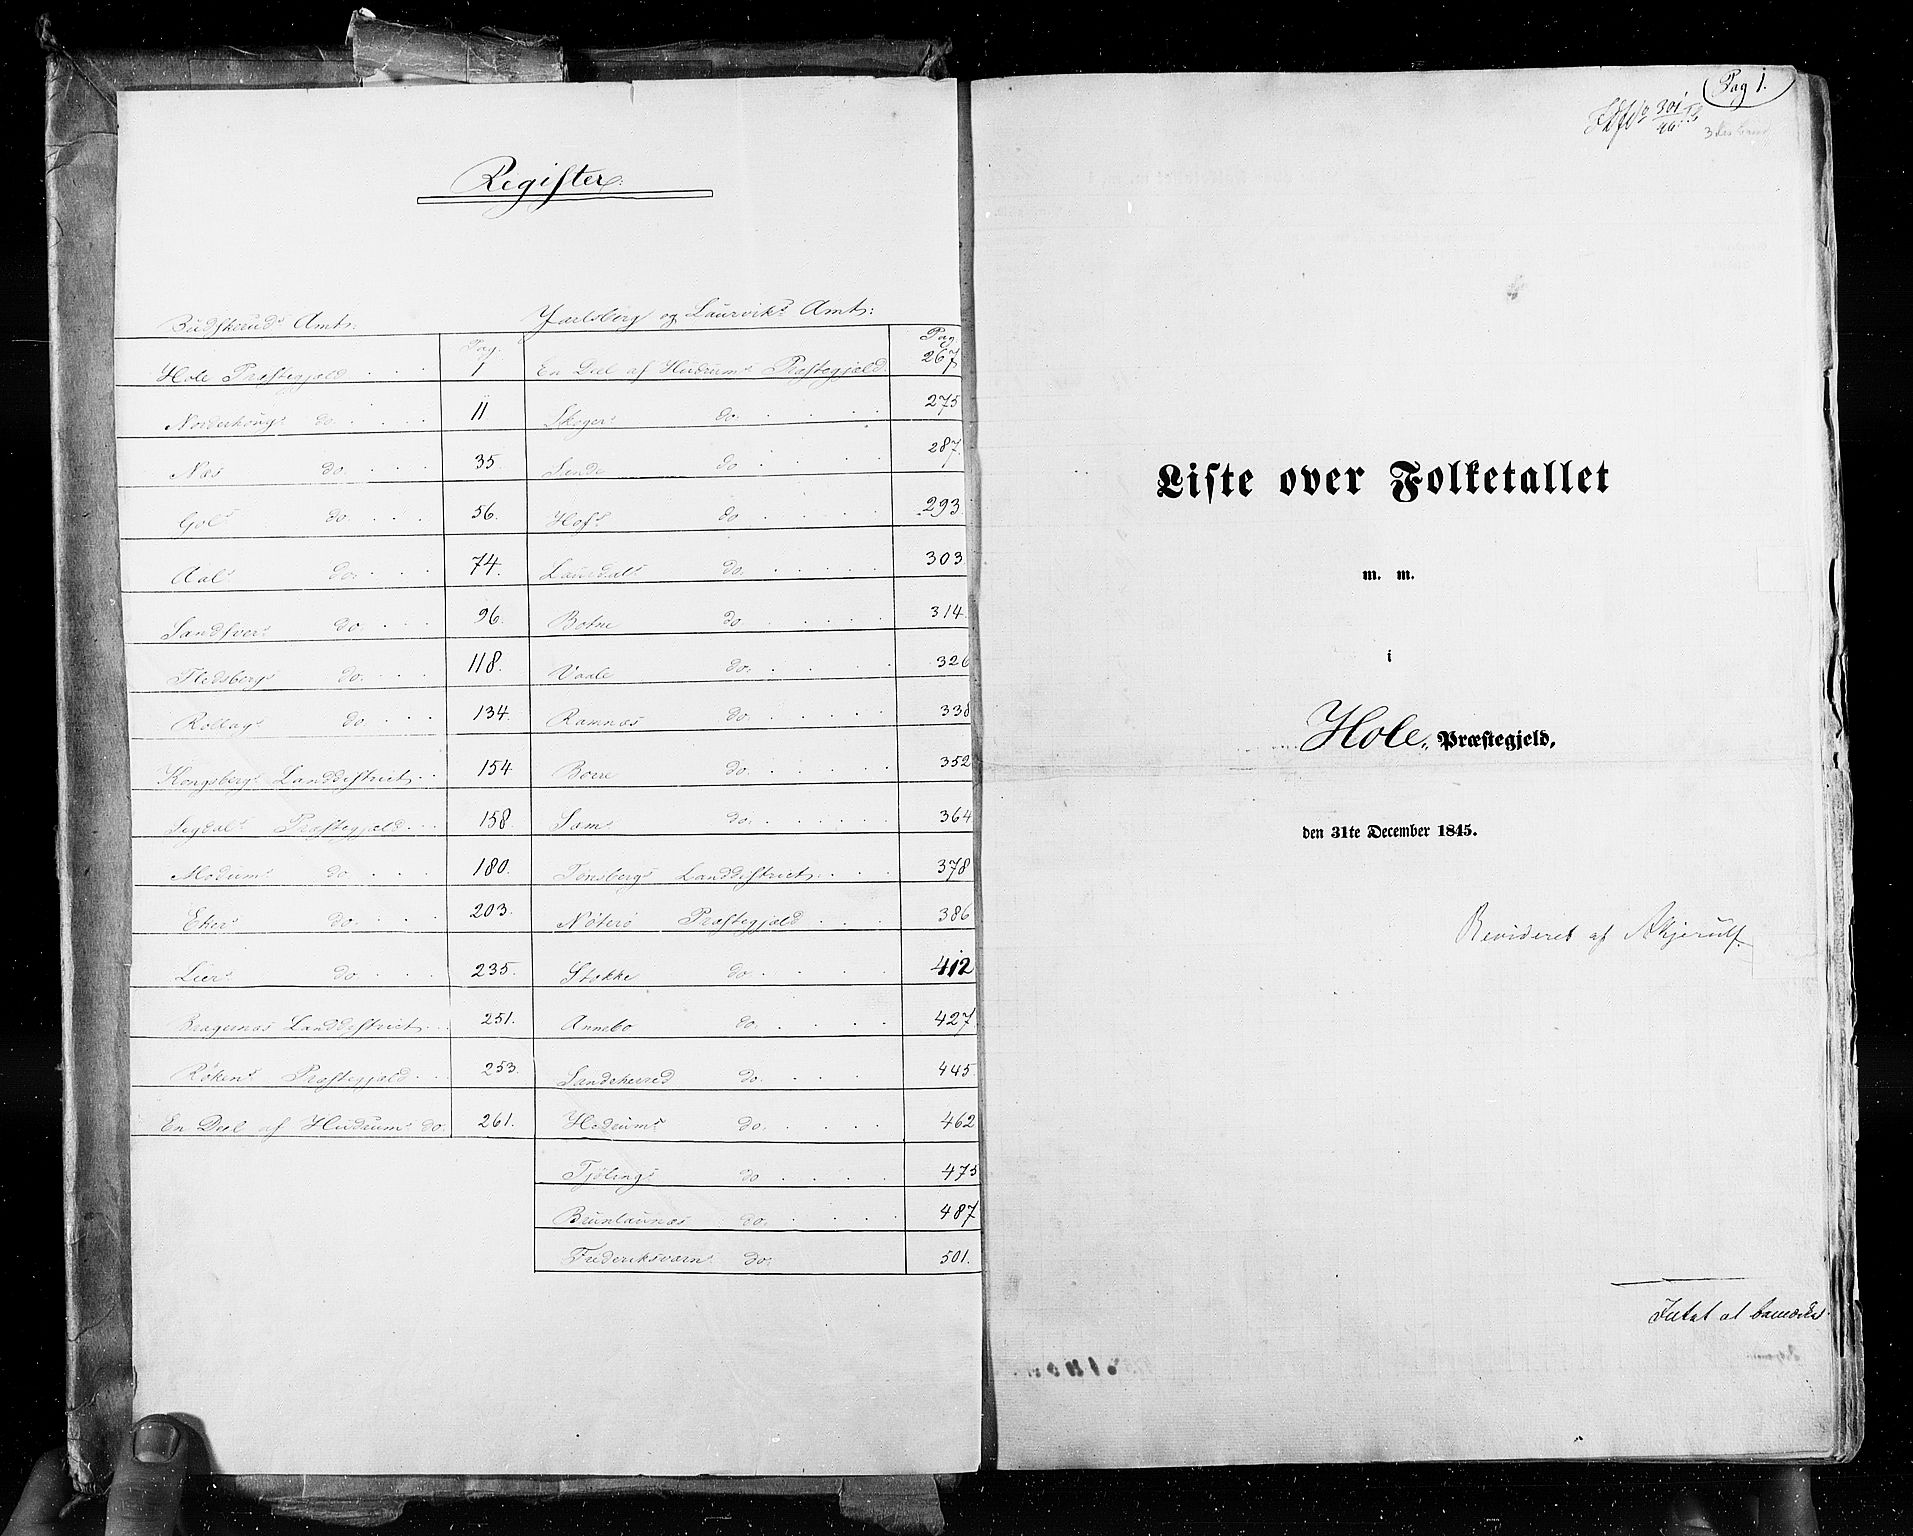 Register.
Budskeruds Amt:
Pag.
Hole Præstegjeld 1
Norderhougs do. 11
Næs do. 35.
Gols do. 56.
Aals do. 74.
Sandsvers do. 96.
Flesbergs do. 118.
Rollags do. 134.
Kongsbergs Landdistrict 154
Sigdals Præstegjæld 158.
Modums do 180.
Ekers do. 203.
Liers do 235.
Bragernæs Landdistrict 251.
Røkens Præstegjæld 253.
En Deel af Hudrums do. 261.
Jarlsberg og Laurviks Amt:
Pag.
En Deel af Hudrums Præstegjæld 267
Skogers do. 275
Sende do 287.
Hofs do 293.
Laurdals do. 303
Botne do 314
Vaale do. 326
Ramnæs do. 338
Borre do. 352
Sems do. 364
Tønsbergs Landdistrict 378
Nøterø Præstegjæld 386
Stokke do 412
Annebo do. 427
Sandeherred do. 445
Hedrums do. 462
Tjølings do 475
Brunlaunæs do. 487
Frederiksværns do. 501.
Pag 1.
Liste over Folketallet
m. m.
i
Hole Præstegjeld,
den 31te December 1845.
Revideret af Akjerulf
Intet at bemærke